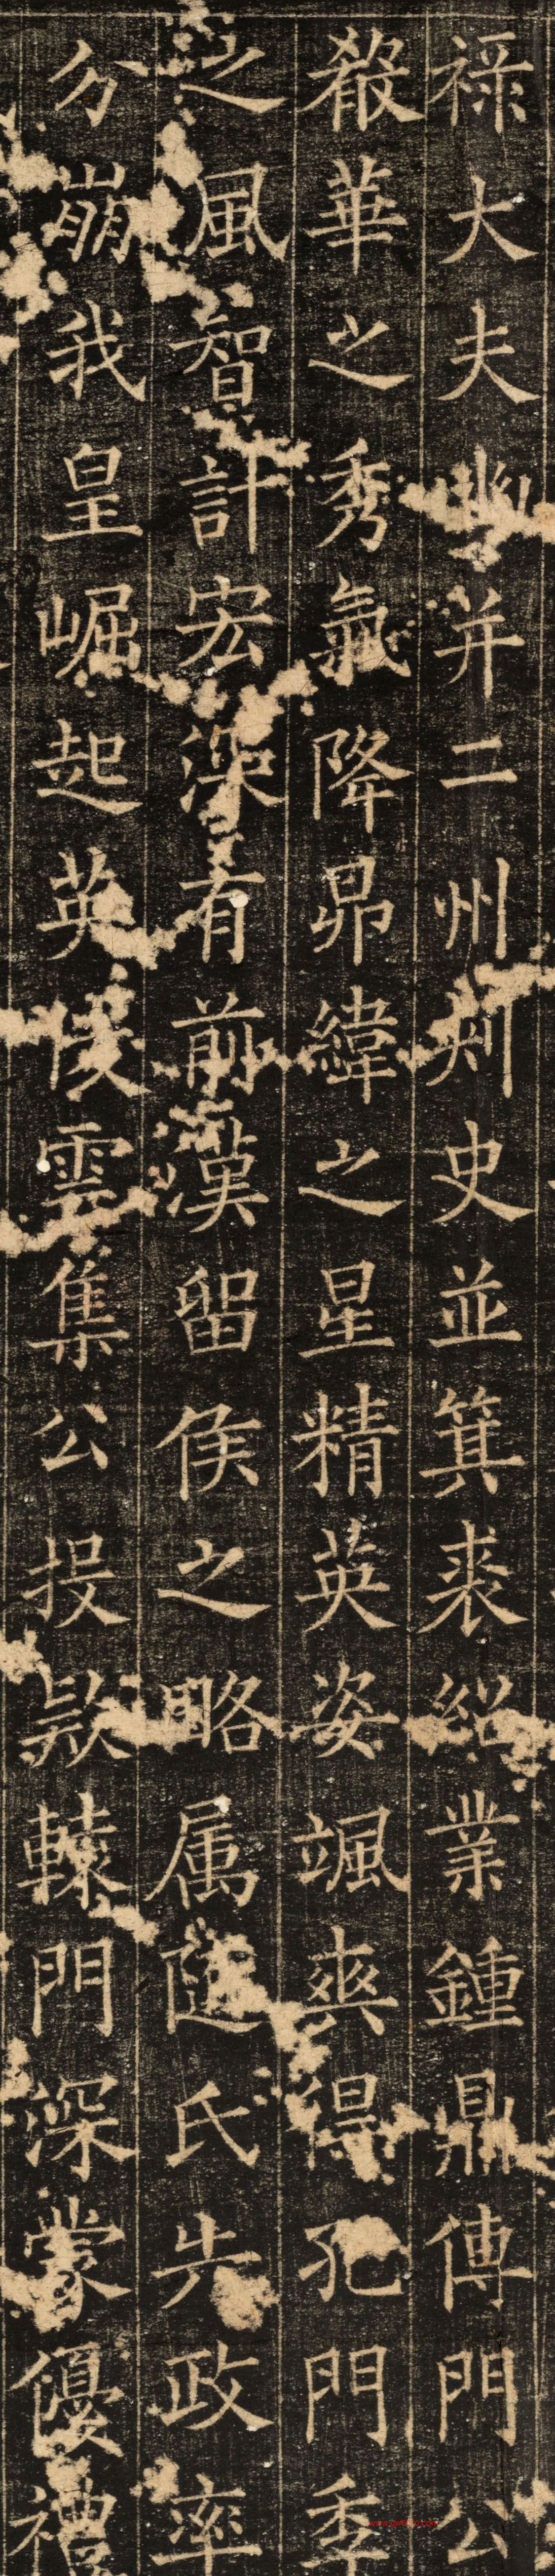 祿大夫幽并二州刺史並箕裘紹業鍾鼎傳門公
殽華之秀氣降昴緯之星精英姿颯爽得孔門季
之風智計宏深有前漢留侯之略属隨氏失政率
分崩我皇崛起英俊雲集公投款轅門深蒙優禮